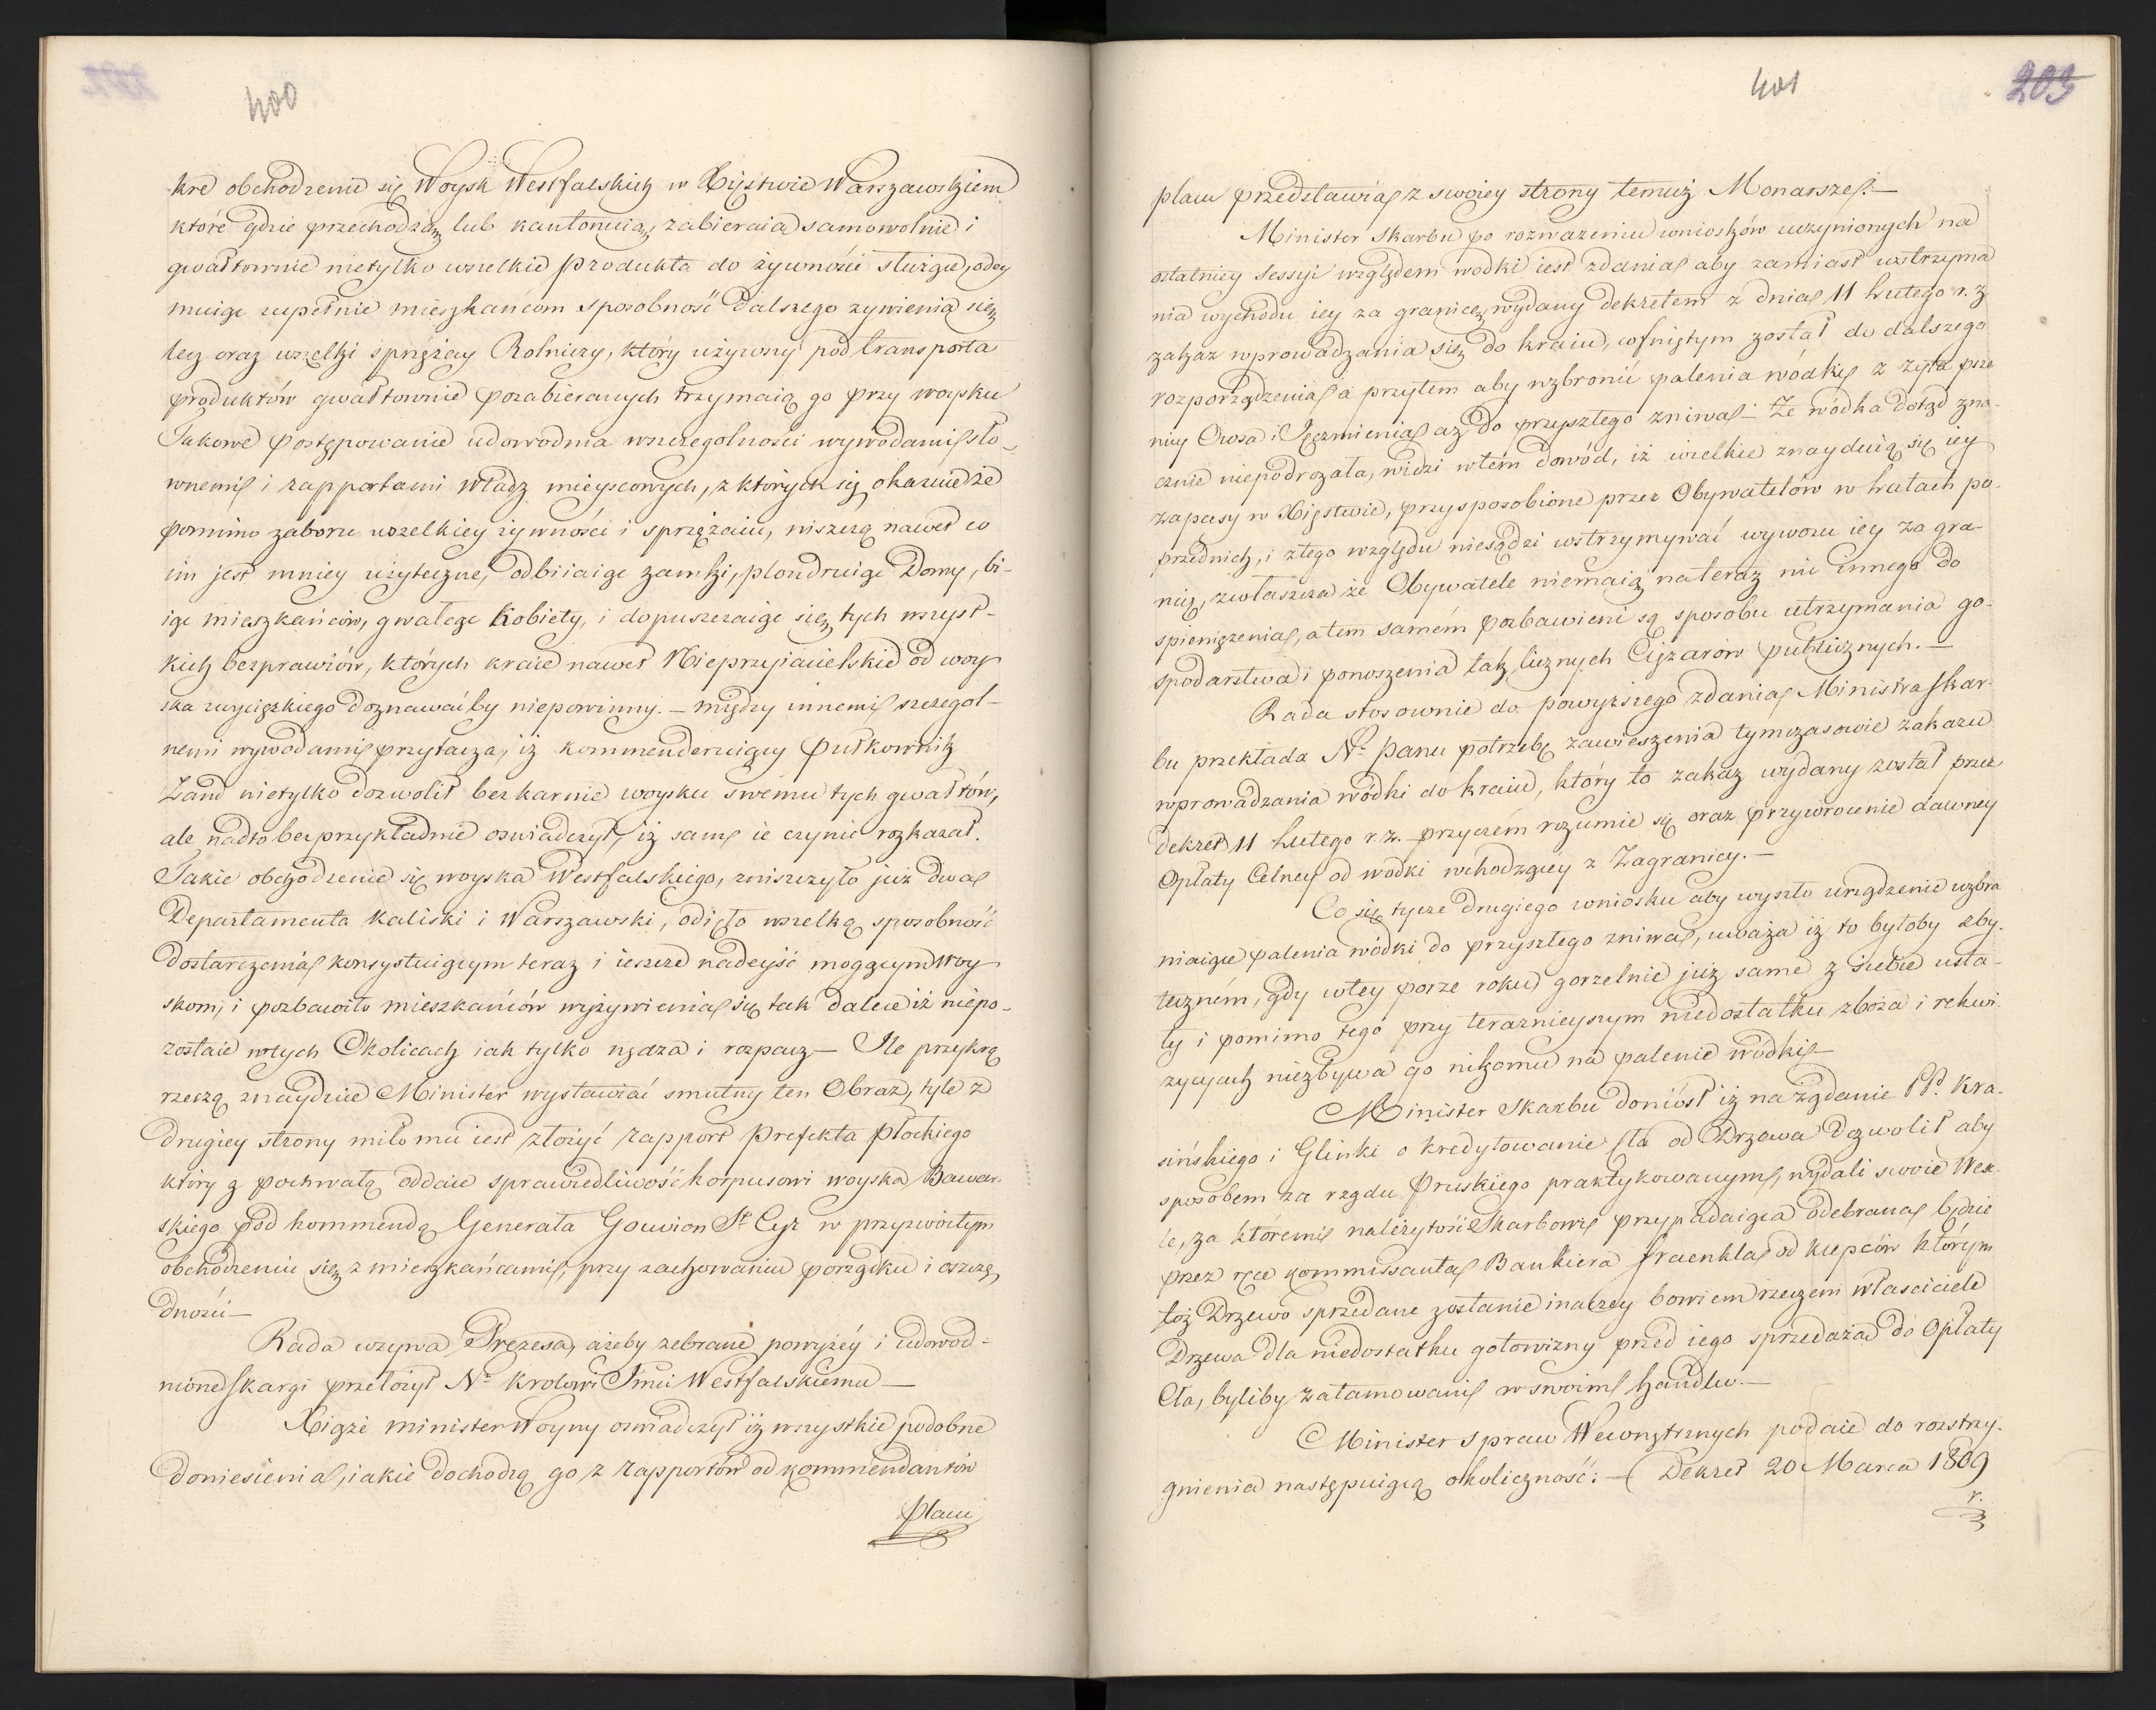 400
kre obchodzenie się Woysk Westfalskich w Xięstwie Warszawskiem
które gdzie przechodzą, lub kantonuią, zabieraią samowolnie i
gwałtownie nietylko wszelkie produkta do żywności służące, odey
muiąc zupełnie mieszkancom sposobność dalszego zywienia się,
lecz oraz wszelki sprzężay Rolniczy, który używszy pod transporta
produktów gwałtownie pozabieranych trzymaią go przy woysku
Takowe postępowanie udowodnia wszczegolności wywodami sło-
wnemi i rapportami Władz mieyscowych, z których się okazuie że
pomimo zaboru wszelkiey żywności i sprzężaiu, niszczą nawet co
im jest mniey użyteczne, odbiiaiąc zamki, plondruiąc Domy, bi-
iąc mieszkańców, gwałcąc Kobiety, i dopuszczaiąc się tych wszyst-
kich bezprawiów, których kraie nawet Nieprzyiacielskie od woy
ska zwycięzkiego doznawaćby niepowinny. — między innemi szczegól-
nemi wywodami przytacza, iż kommenderuiący Pułkownik
Zand nietylko dozwolił bezkarnie woysku swemu tych gwałtów,
ale nadto bezprzykładnie oswiadczył, iż sam ie czynić rozkazał.
Takie obchodzenie się woyska Westfalskiego, zniszczyło już dwa
Departamenta Kaliski i Warszawski, odięło wszelką sposobność
dostarczenia konsystuiącym teraz i ieszcze nadeyść mogącym Woy
skom, i pozbawiło mieszkańców wyżywienia się tak dalece iż niepo-
zostaie wtych Okolicach iak tylko nędza i rozpacz — Ile przykrą
rzeczą znayduie Minister wystawiać smutny ten Obraz, tyle z
drugiey strony miło mu iest złożyć rapport Prefekta Płockiego
który z pochwałą oddaie sprawiedliwość korpusowi woyska Bawar-
skiego pod kommendą Generała Gouvion St Cyr w przyzwoitym
obchodzeniu się z mieszkańcami, przy zachowaniu porządku i oszczę
dności —
Rada wzywa Prezesa, ażeby zebrane powyżéy i udowod-
nione skargi przełożył No Krolowi Jmci Westfalskiemu —
Xiąże minister Woyny oswiadczył iż wszystkie podobne
doniesienia, iakie dochodzą go z rapportów od kommendantów
placu
401
203
placu przedstawia z swoiey strony temuż Monarsze. —
Minister Skarbu po rozwazeniu wniosków uczynionych na
ostatniey Sessyi względem wodki iest zdania aby zamiast wstrzyma
nia wychodu iey za granicę, wydany dekretem z dnia 11 Lutego r. z
zakaz wprowadzania się do kraiu, cofniętym został do dalszego
rozporządzenia a przytem aby wzbronić palenia wódki z żyta psze
nicy Owsa i Jęczmienia aż do przyszłego zniwa — Że wódka dotąd zna-
cznie niepodrozała, widzi wtém dowód, iż wielkie znayduią się iey
zapasy w Xięstwie, przysposobione przez Obywatelów w latach po-
przednich, i ztego względu niesądzi wstrzymywać wywozu iey za gra-
nicę, zwłaszcza że Obywatele niemaią nateraz nic innego do
spieniężenia, a tem samém pozbawieni są sposobu utrzymania go-
spodarstwa i ponoszenia tak licznych Ciężarów publicznych. —
Rada stosownie do powyższego zdania Ministra Skar-
bu przekłada No Panu potrzebę zawieszenia tymczasowie zakazu
wprowadzania wódki do kraiu, który to zakaz wydany został przez
dekret 11 Lutego r. z. przyczém rozumie się oraz przywrocenie dawney
Opłaty Celney od wodki wchodzącéy z Zagranicy. —
Co się tycze drugiego wniosku aby wyszło urządzenie wzbra
niaiące palenia wódki do przyszłego zniwa, uważa iż to byłoby zby-
teczném, gdy wtey porze roku gorzelnie już same z siebie usta-
ły i pomimo tego przy terazniejszym niedostatku zboża i rekwi-
zycyach niezbywa go nikomu na palenie wódki —
Minister Skarbu doniósł iż na żądanie PP. Kra-
sińskiego i Glinki o kredytowanie cła od Drzewa dozwolił aby
sposobem za rządu Pruskiego praktykowanym, wydali swoie Wex-
le, za któremi należytość Skarbowi przypadaiąca odebrana będzie
przez ręce kommissanta Bankiera Fraenkla od kupców którym
toż Drzewo sprzedane zostanie inaczey bowiem rzeczeni właściciele
Drzewa dla niedostatku gotowizny przed iego sprzedażą do Opłaty
Cła, byliby zatamowani w swoim handlu. —
Minister Spraw Wewnętrznych podaie do rozstrzy-
gnienia następuiącą okoliczność: — (Dekret 20 Marca 1809
r.